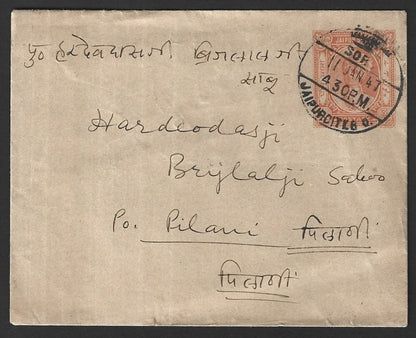 पु० हरदेवदासजी ब्रिजलाल जी
साबू
SOR.
11 JAN. 47
4.30 P.M.
JAIPUR CITY
Hardeodasji
Brijlalji Saboo
Po. Pilani पिलानी
पिलानी